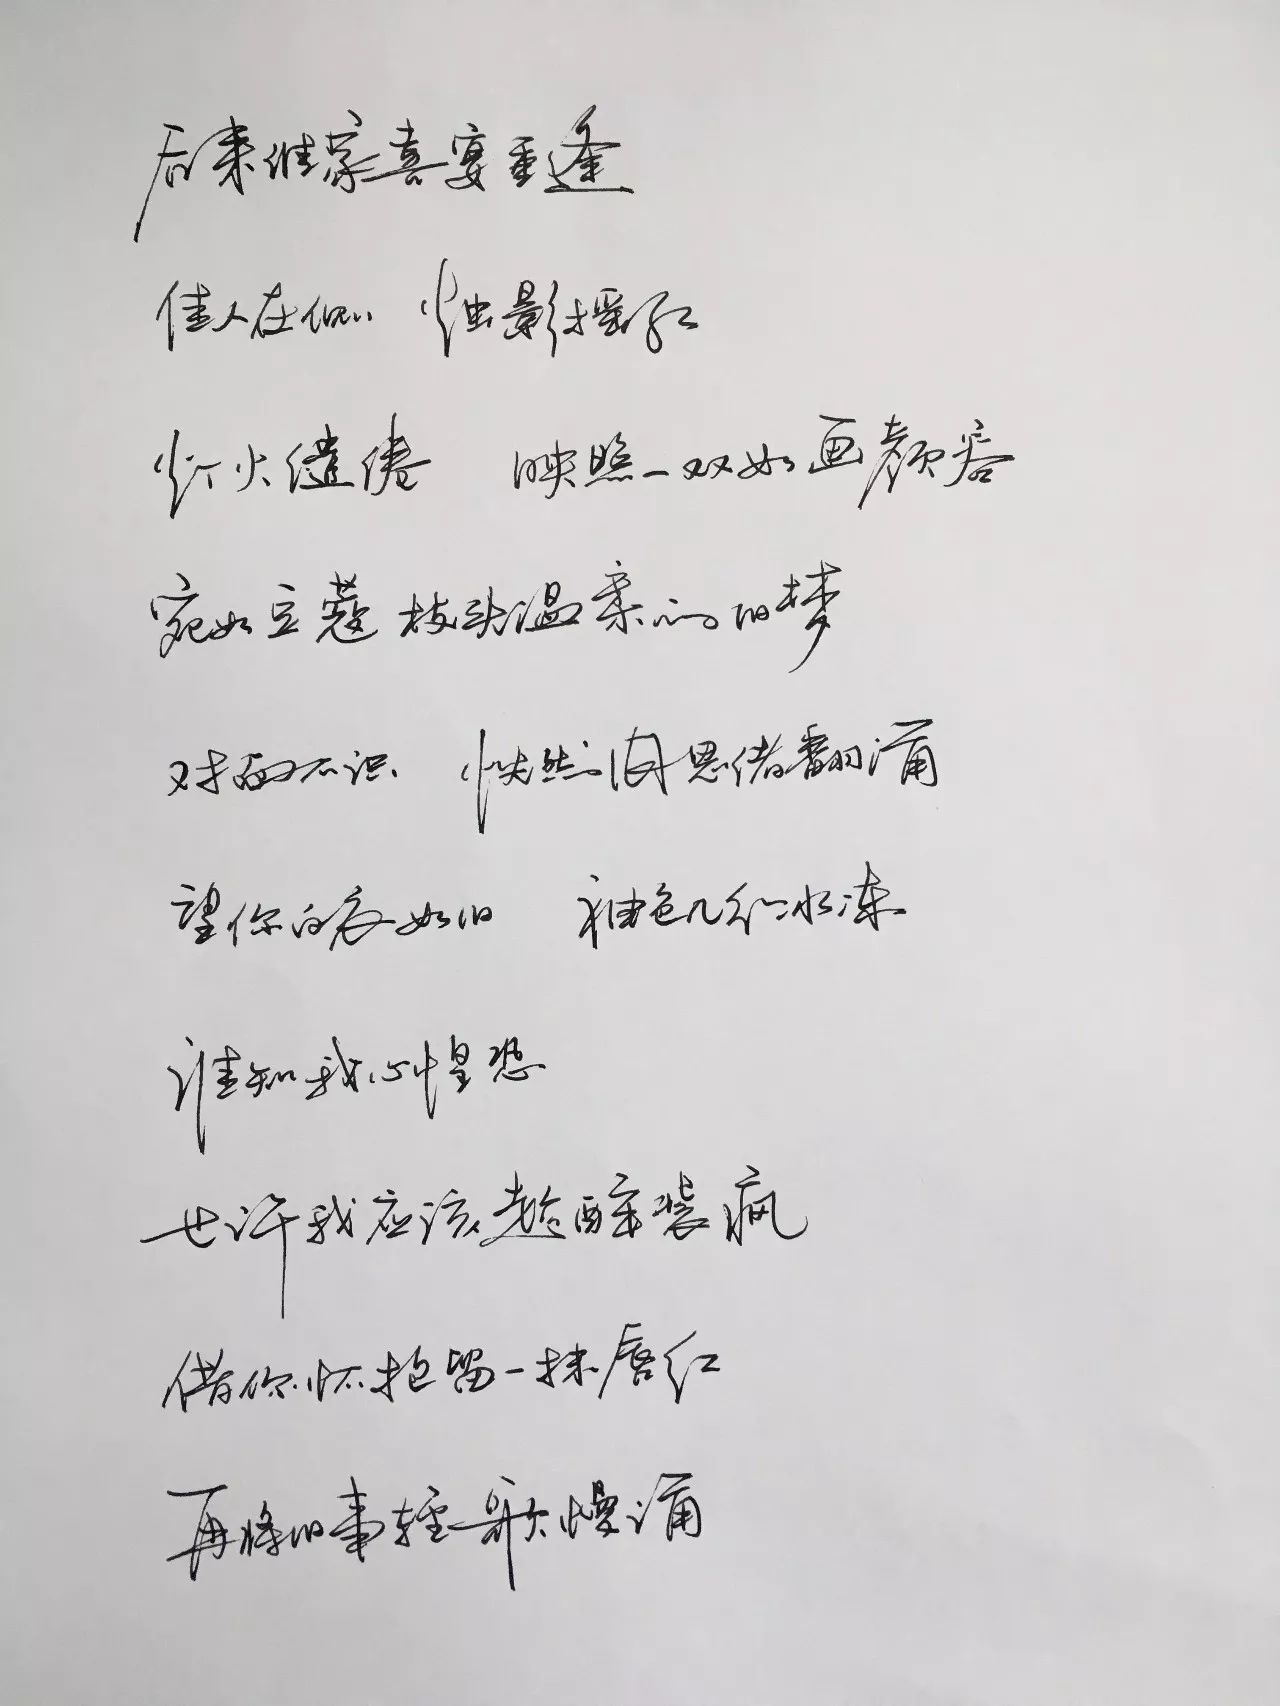 后来谁家喜宴重逢
佳人在侧 烛影摇红
灯火缱绻 映照一双如画颜容
宛如豆蔻枝头温柔的旧梦
对面不识 恍然间思绪翻涌
望你白衣如旧 神色几分冰冻
谁知我心惶恐
也许我应该趁醉装疯
借你怀抱留一抹唇红
再将旧事轻歌慢诵